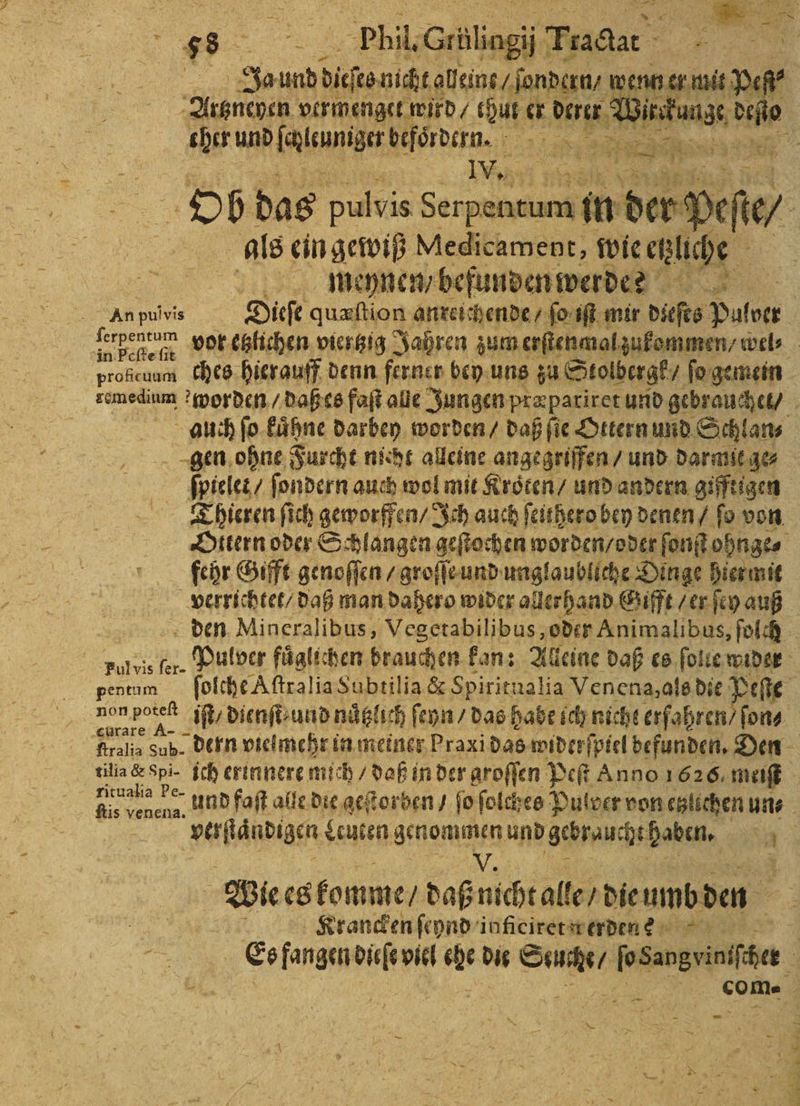 58 Phil. Grülingij Tractat
Ja und dieses nicht alleine / sondern / wenn er mit Pest-
Artzneyen vermenget wird / thut er derer Wirckunge desto
eher und schleuniger befördern.
IV.
Ob das pulvis Serpentum in der Peste /
als ein gewiß Medicament, wie etzliche
meynen / befunden werde?
An pulvis
serpentum
in Peste sit
proficuum
remedium?
Diese quæstion anreichende / so ist mir dieses Pulver
vor etzlichen viertzig Jahren zum erstenmal zukommen / wel-
ches hierauff denn ferner bey uns zu Stolbergk / so gemein
worden / daß es fast alle Jungen præpariret und gebrauchet /
auch so kühne darbey worden / daß sie Ottern und Schlan-
gen ohne Furcht nicht alleine angegriffen / und darmit ge-
spielet / sondern auch wol mit Kröten / und andern gifftigen
Thieren sich geworffen / Ich auch seithero bey denen / so von
Ottern oder Schlangen gestochen worden / oder sonst ohnge-
fehr Gifft genossen / grosse und unglaubliche Dinge hiermit
verrichtet / daß man dahero wider allerhand Gifft / er sey auß
den Mineralibus, Vegetabilibus, oder Animalibus, solch
Pulver füglichen brauchen kan: Alleine daß es solte wider
solche Astralia Subtilia & Spiritualia Venena, als die Peste
ist / dienst- und nützlich seyn / das habe ich nicht erfahren / son-
dern vielmehr in meiner Praxi das widerspiel befunden. Den
ich erinnere mich / daß in der grossen Pest Anno 1626. meist
und fast alle die gestorben / so solches Pulver von etzlichen un-
verständigen Leuten genommen und gebraucht haben.
Pulvis ser-
pentum
non potest
curare A-
stralia Sub-
tilia & Spi-
ritualia Pe-
stis venena.
V.
Wie es komme / daß nicht alle / die umb den
Krancken seynd inficiret werden?
Es fangen diese viel ehe die Seuche / so Sangvinischer
com-